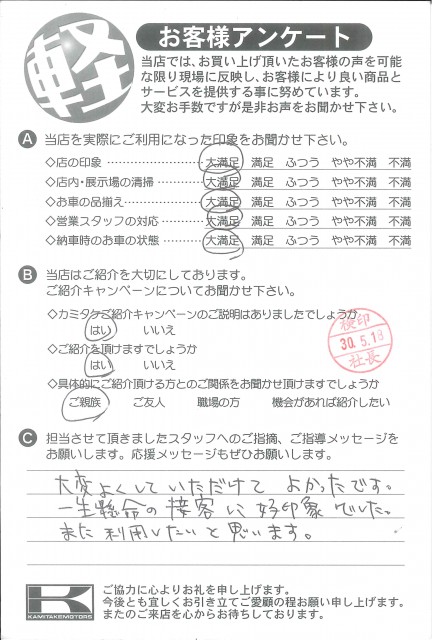 軽
お客様アンケート
当店では、お買い上げ頂いたお客様の声を可能
な限り現場に反映し、お客様により良い商品と
サービスを提供する事に努めています。
大変お手数ですが是非お声をお聞かせ下さい。
A 当店を実際にご利用になった印象をお聞かせ下さい。
◇店の印象 大満足 満足 ふつう やや不満 不満
◇店内・展示場の清掃 大満足 満足 ふつう やや不満 不満
◇お車の品揃え 大満足 満足 ふつう やや不満 不満
◇営業スタッフの対応 大満足 満足 ふつう やや不満 不満
◇納車時のお車の状態 大満足 満足 ふつう やや不満 不満
B 当店はご紹介を大切にしてあります。
ご紹介キャンペーンについてお聞かせ下さい。
◇カミタケご紹介キャンペーンのご説明はありましたでしょうか
はい いいえ
◇ご紹介を頂けますでしょうか
はい いいえ
◇具体的にご紹介頂ける方とのご関係をお聞かせ頂けますでしょうか
ご親族 ご友人 職場の方 機会があれば紹介したい
検印
30.5.18
社長
C 担当させて頂きましたスタッフへのご指摘、ご指導メッセージを
お願いします。応援メッセージもぜひお願いします。
大変よくしていただけて よかったです。
一生懸命の接客に好印象でした。
また利用したいと思います。
K
KAMITAKEMOTORS
ご協力に心よりお礼を申し上げます。
今後とも宜しくお引き立てご愛顧の程お願い申し上げます。
またのご来店を心からお待ちしております。